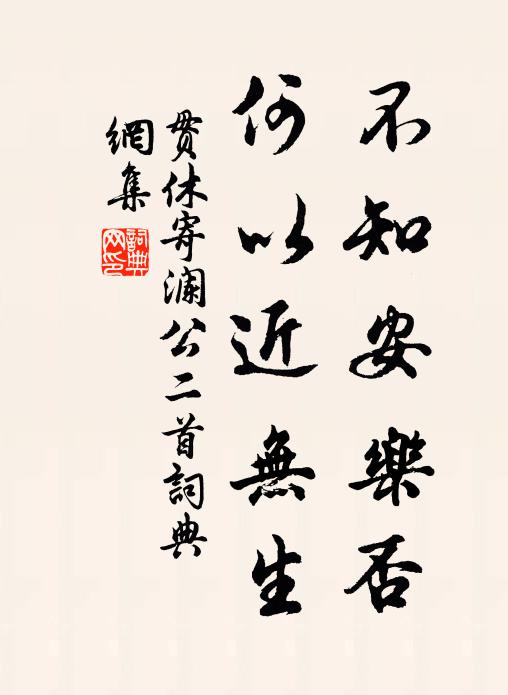 不知安樂否
何以近無生
貫休寄澜公二首詞典
網集
詞典網印